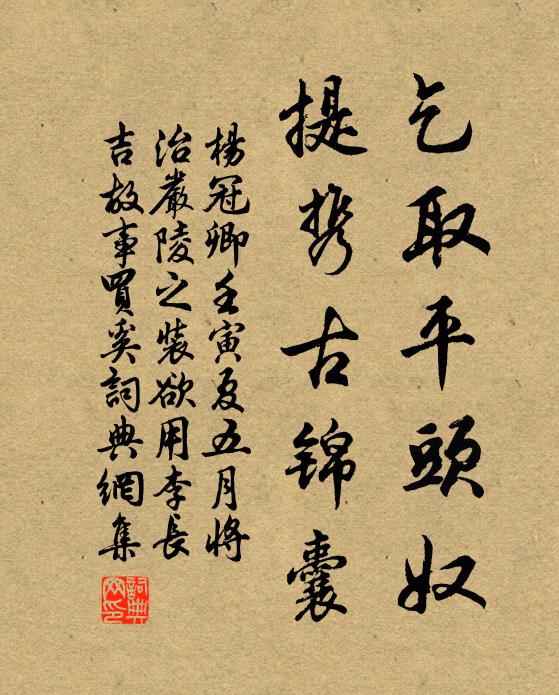 乞取平頭奴
提携古锦囊
楊冠卿壬寅夏五月將
治嚴陵之裝欲用李長
吉故事買奚詞典網集
詞典網印